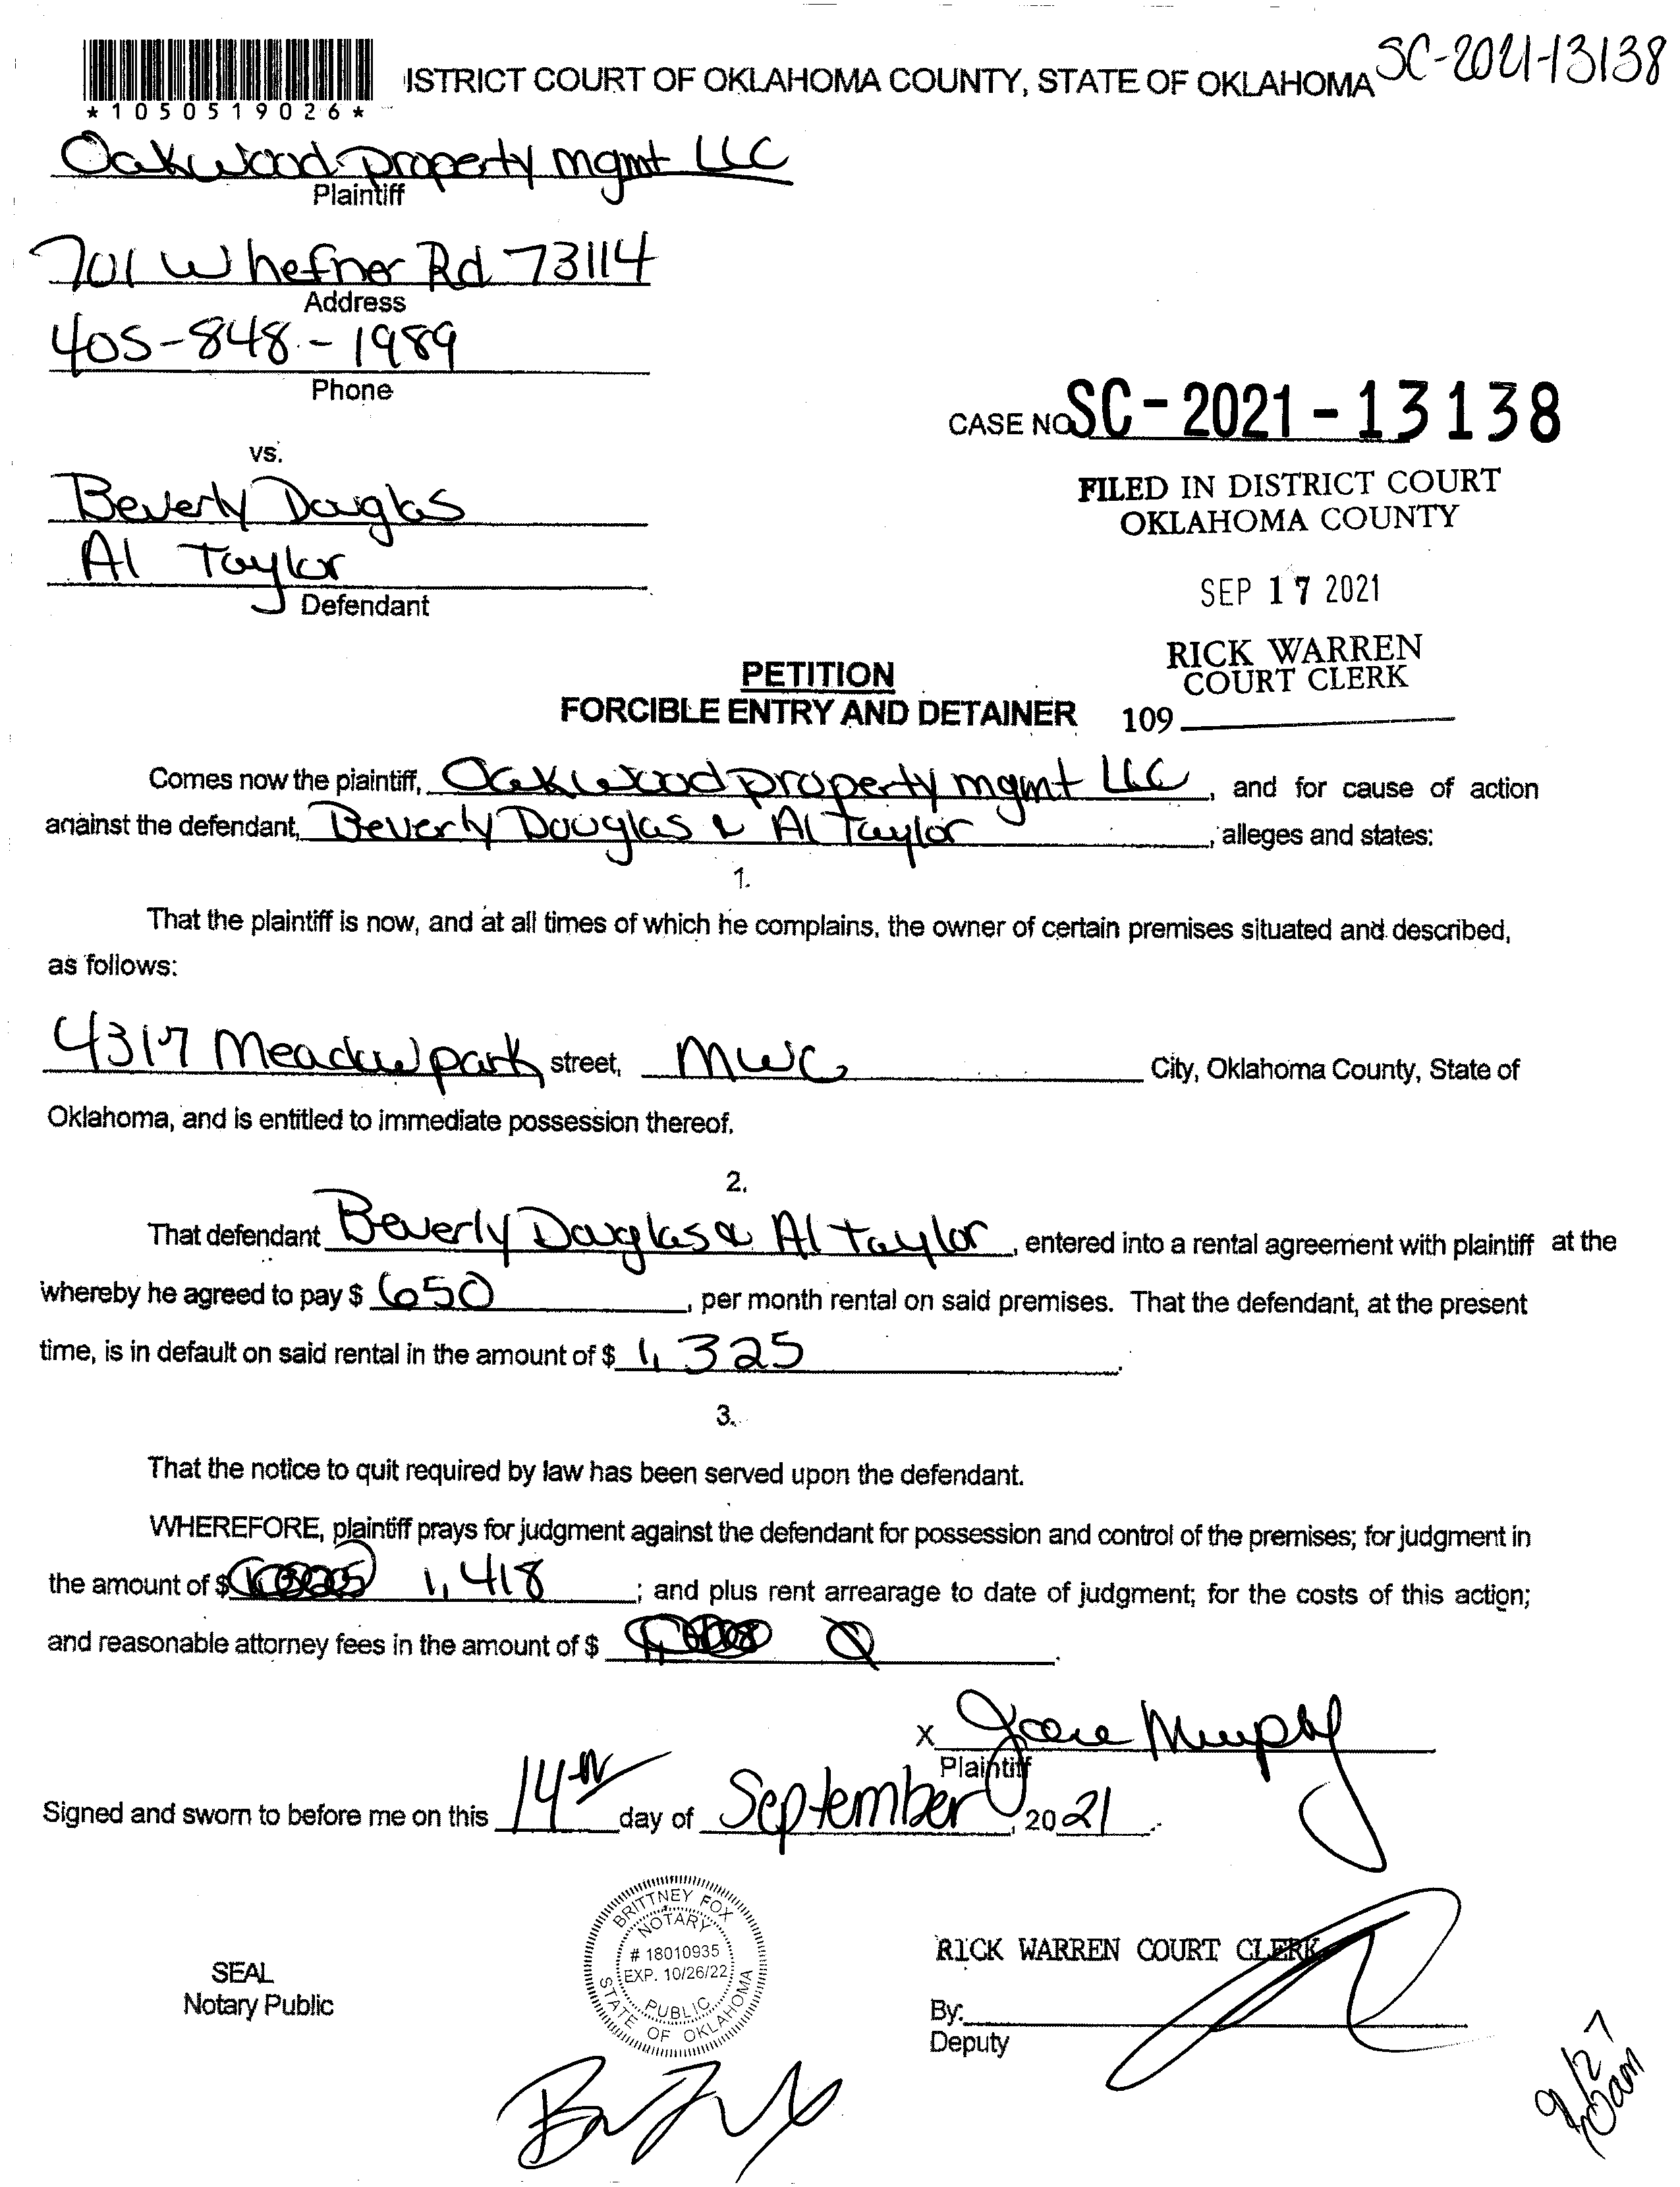 ISTRICT COURT OF OKLAHOMA COUNTY, STATE OF OKLAHOMA SC-2021-13138
*1050519026*
Oakwood property mgmt LLC
Plaintiff
701 W hefner Rd 73114
Address
405-848-1989
Phone
CASE NO SC-2021-13138
vs.
FILED IN DISTRICT COURT
OKLAHOMA COUNTY
Beverly Douglas
Al Taylor
Defendant
SEP 17 2021
RICK WARREN
COURT CLERK
109
PETITION
FORCIBLE ENTRY AND DETAINER
Comes now the plaintiff, Oakwood property mgmt LLC, and for cause of action
against the defendant, Beverly Douglas & Al Taylor, alleges and states:
1.
That the plaintiff is now, and at all times of which he complains, the owner of certain premises situated and described,
as follows:
4317 Meadowpark street, MWC City, Oklahoma County, State of
Oklahoma, and is entitled to immediate possession thereof.
2.
That defendant Beverly Douglas & Al Taylor, entered into a rental agreement with plaintiff at the
whereby he agreed to pay $ 650, per month rental on said premises. That the defendant, at the present
time, is in default on said rental in the amount of $ 1,325.
3.
That the notice to quit required by law has been served upon the defendant.
WHEREFORE, plaintiff prays for judgment against the defendant for possession and control of the premises; for judgment in
the amount of $ 1,418; and plus rent arrearage to date of judgment; for the costs of this action;
and reasonable attorney fees in the amount of $ 0.
X Murphy
Plaintiff
Signed and sworn to before me on this 14th day of September, 2021.
BRITTNEY FOX
NOTARY
# 18010935
EXP. 10/26/22
PUBLIC
STATE OF OKLAHOMA
SEAL
Notary Public
RICK WARREN COURT CLERK
By:
Deputy
9/27